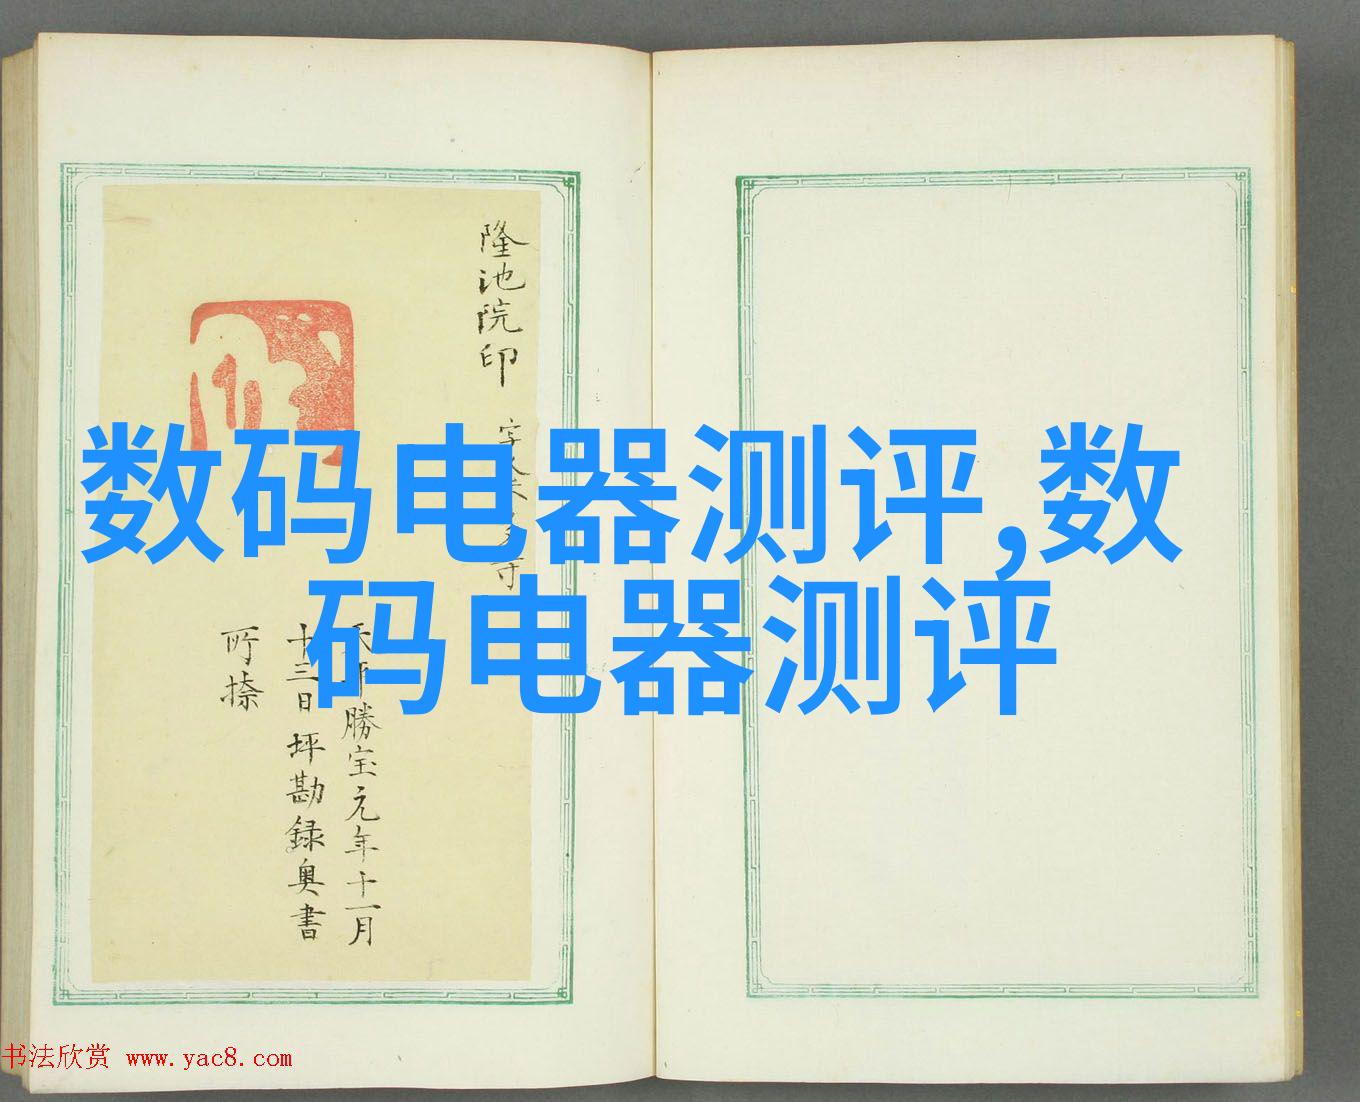 隆池院印
数码电器测评,数
码电器测评
勝宝元年十一月
十三日坪勘録奥書
所捺
书法欣赏 www.yac8.com